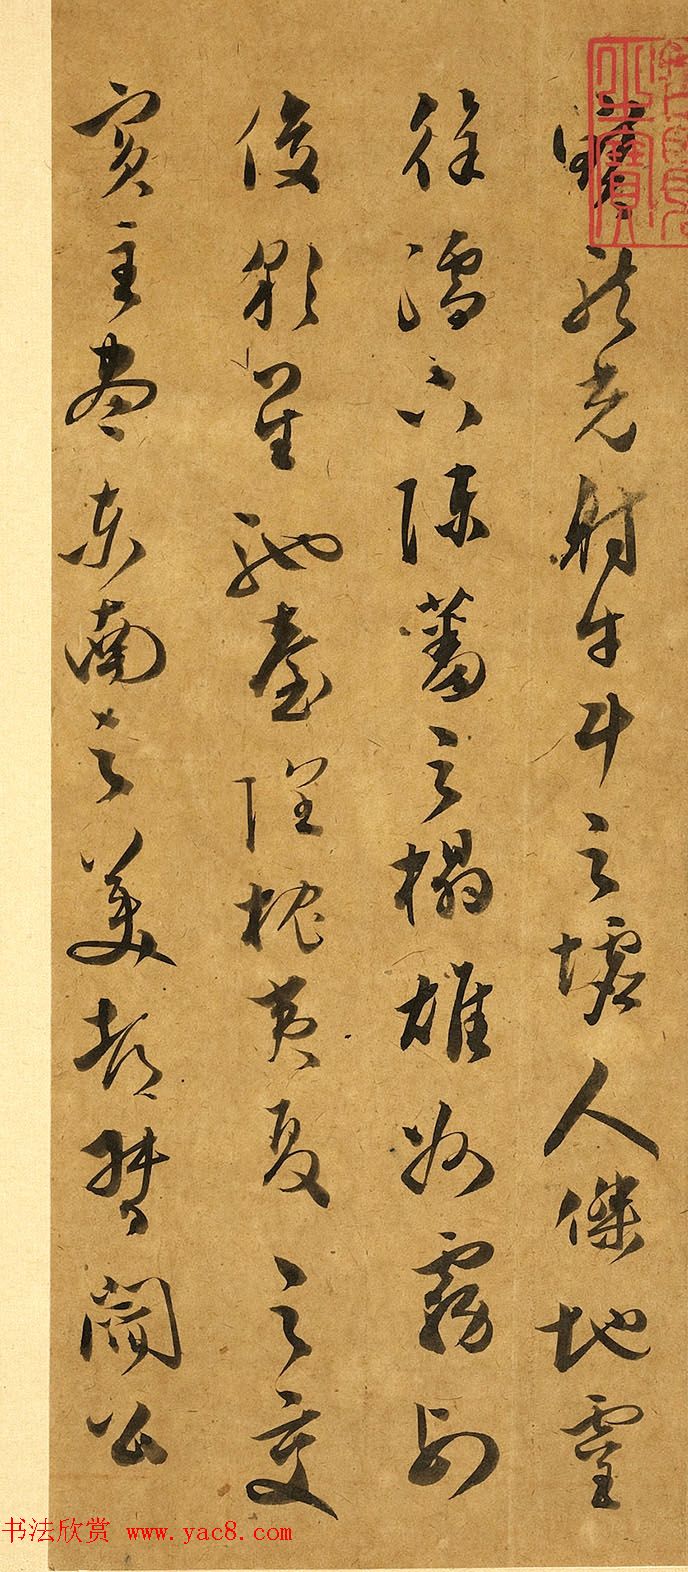 寶龍光射牛斗之墟人傑地靈
徐孺下陳蕃之榻雄州霧列
俊彩星馳臺隍枕夷夏之交
賓主盡東南之美都督閻公
书法欣赏 www.yac8.com